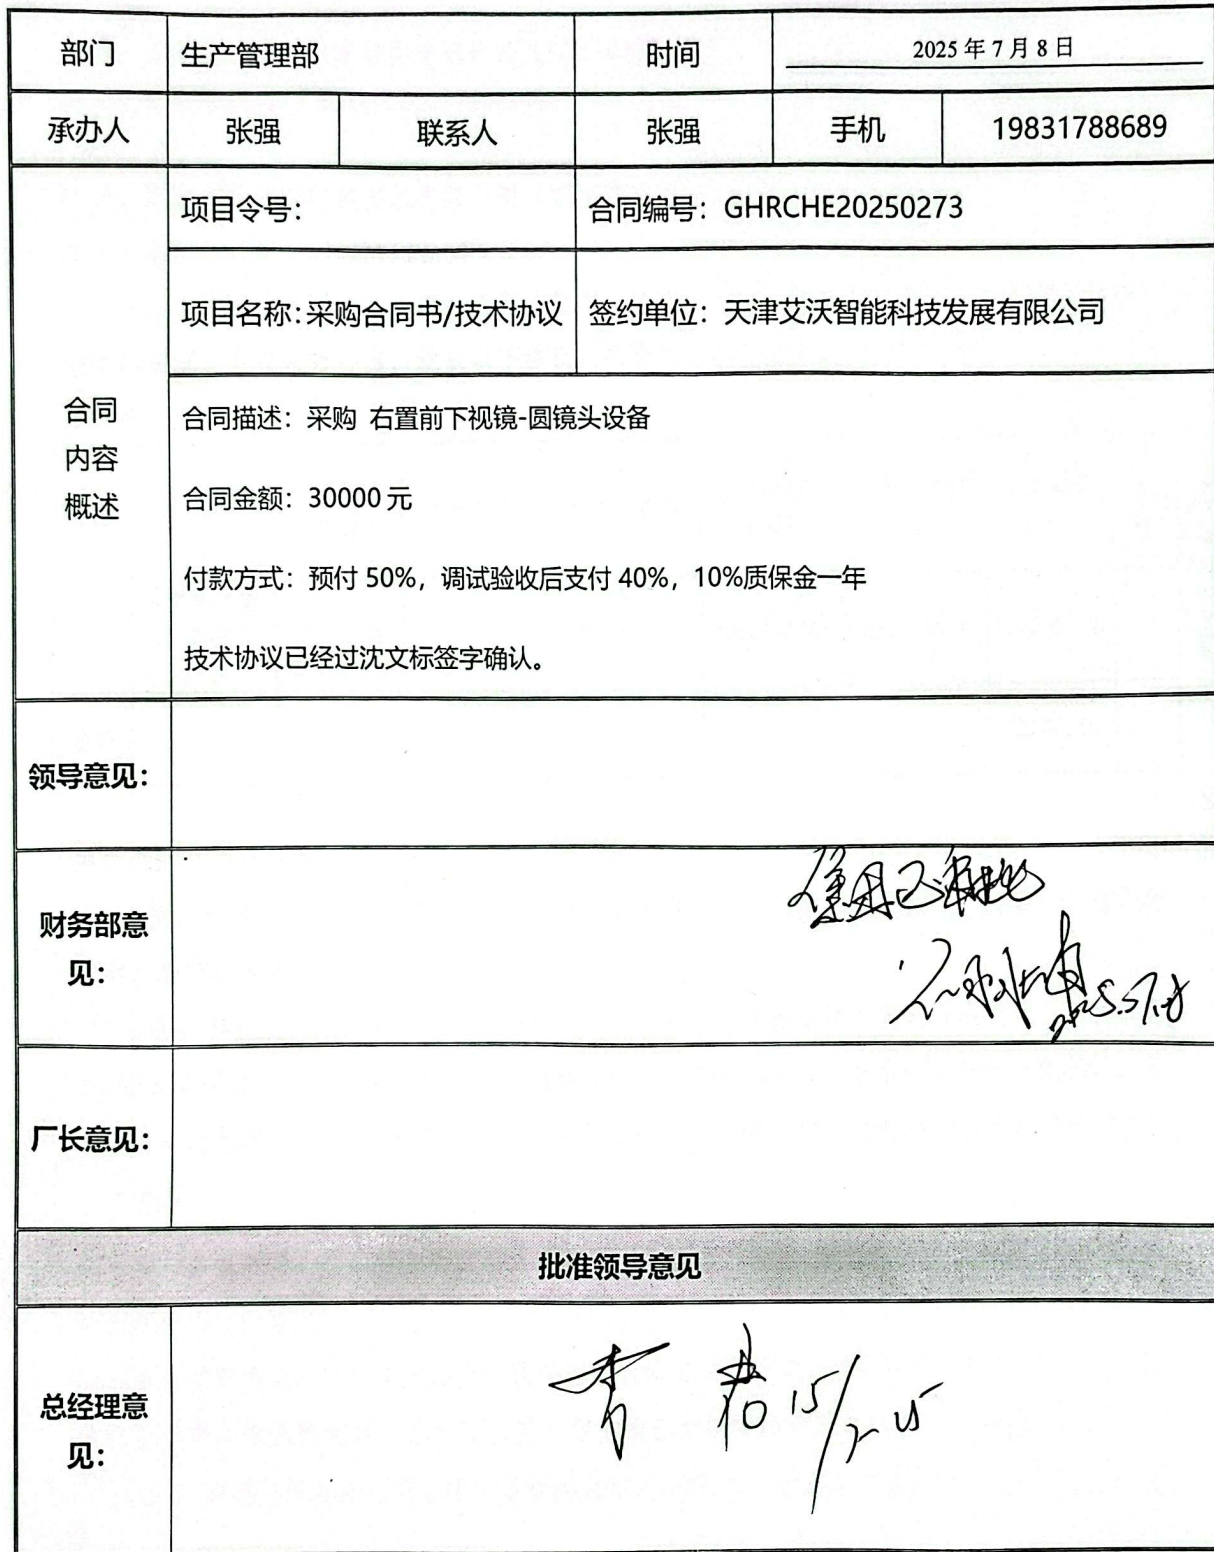 部门 生产管理部 时间 2025年7月8日
承办人 张强 联系人 张强 手机 19831788689
项目令号： 合同编号：GHRCHE20250273
项目名称：采购合同书/技术协议 签约单位：天津艾沃智能科技发展有限公司
合同
内容
概述
合同描述：采购 右置前下视镜-圆镜头设备
合同金额：30000元
付款方式：预付50%，调试验收后支付40%，10%质保金一年
技术协议已经过沈文标签字确认。
领导意见：
财务部意
见：
厂长意见：
批准领导意见
总经理意
见：